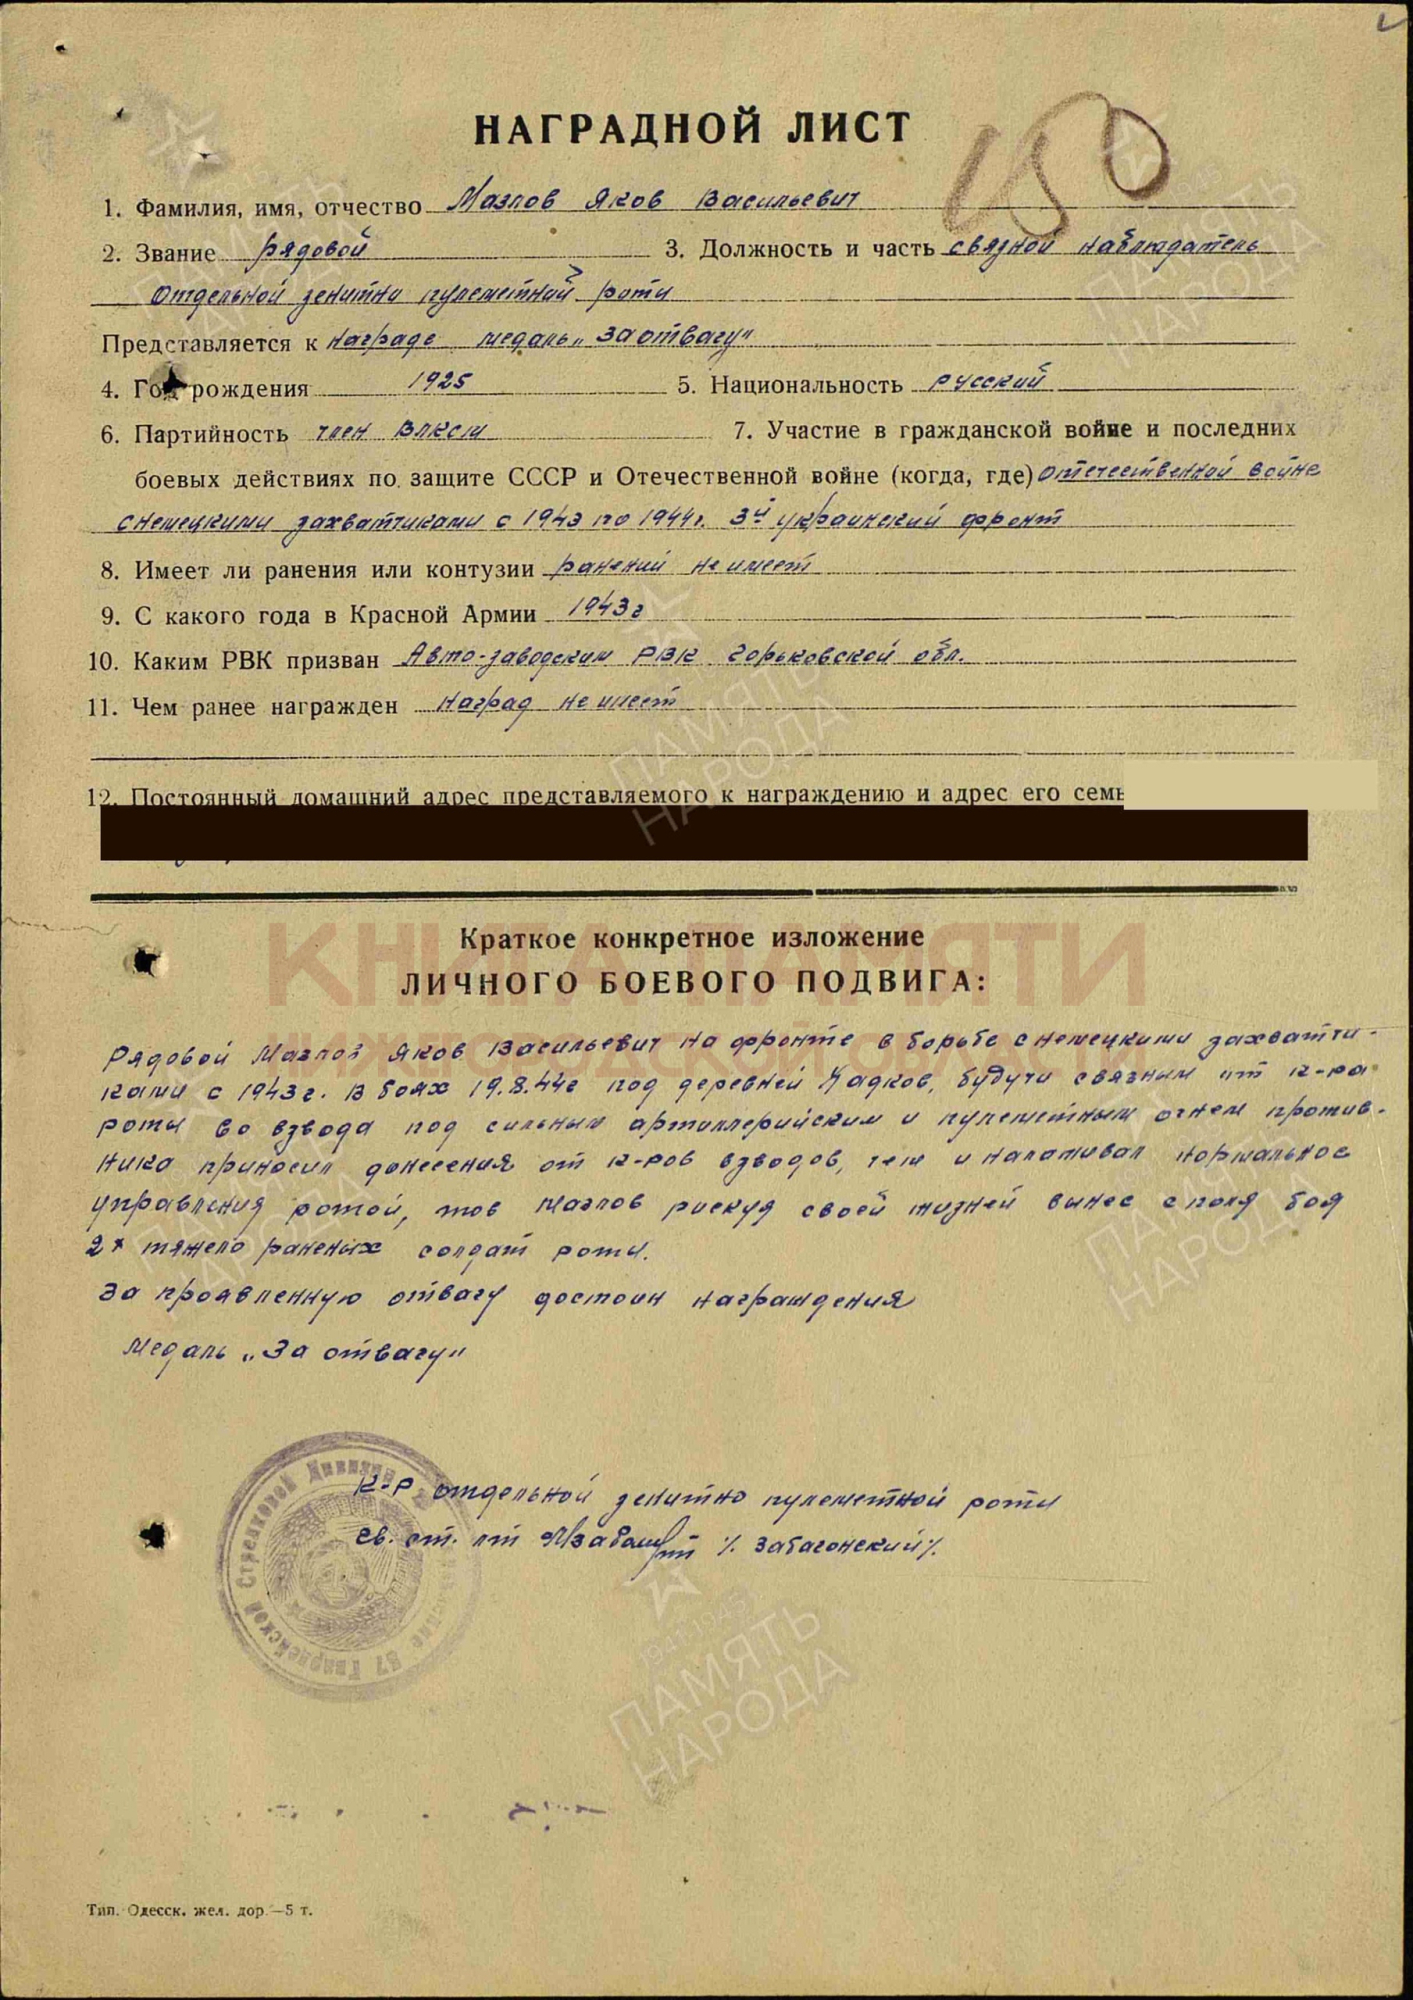 НАГРАДНОЙ ЛИСТ
1. Фамилия, имя, отчество Мазлов Яков Васильевич
2. Звание рядовой 3. Должность и часть связной наблюдатель
Отдельной зенитно пулеметной роты
Представляется к награде медаль „За отвагу"
4. Год рождения 1925 5. Национальность русский
6. Партийность член ВЛКСМ 7. Участие в гражданской войне и последних
боевых действиях по защите СССР и Отечественной войне (когда, где) отечественной войне
с немецкими захватчиками с 1943 по 1944г. 3й украинский фронт
8. Имеет ли ранения или контузии ранений не имеет
9. С какого года в Красной Армии 1943г
10. Каким РВК призван Авто-заводским РВК Горьковской обл.
11. Чем ранее награжден наград не имеет
12. Постоянный домашний адрес представляемого к награждению и адрес его семь
Краткое конкретное изложение
ЛИЧНОГО БОЕВОГО ПОДВИГА:
Рядовой Мазлов Яков Васильевич на фронте в борьбе с немецкими захватчи-
ками с 1943г. В боях 19.8.44г под деревней будучи связным от к-ра
роты во взвода под сильным артиллерийским и пулеметным огнем против-
ника приносил донесения от к-ров взводов, тем и налаживал нормальное
управления ротой, тов Мазлов рискуя своей жизней вынес с поля боя
2х тяжело раненых солдат роты.
За проявленную отвагу достоин награждения
медаль „За отвагу"
К-р отдельной зенитно пулеметной роты
гв. ст. л-т /. Забагонский /.
57 Гвардейской Стрелковой Дивизии
Тип. Одесск. жел. дор.—5 т.
КНИГА ПАМЯТИ
НИЖЕГОРОДСКОЙ
ПАМЯТЬ НАРОДА
1941-1945